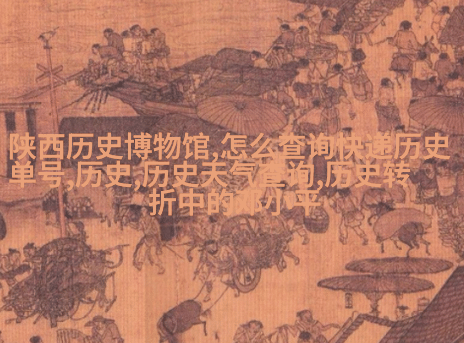 陕西历史博物馆,怎么查询快递历史
单号,历史,历史天气查询,历史转
折中的邓小平